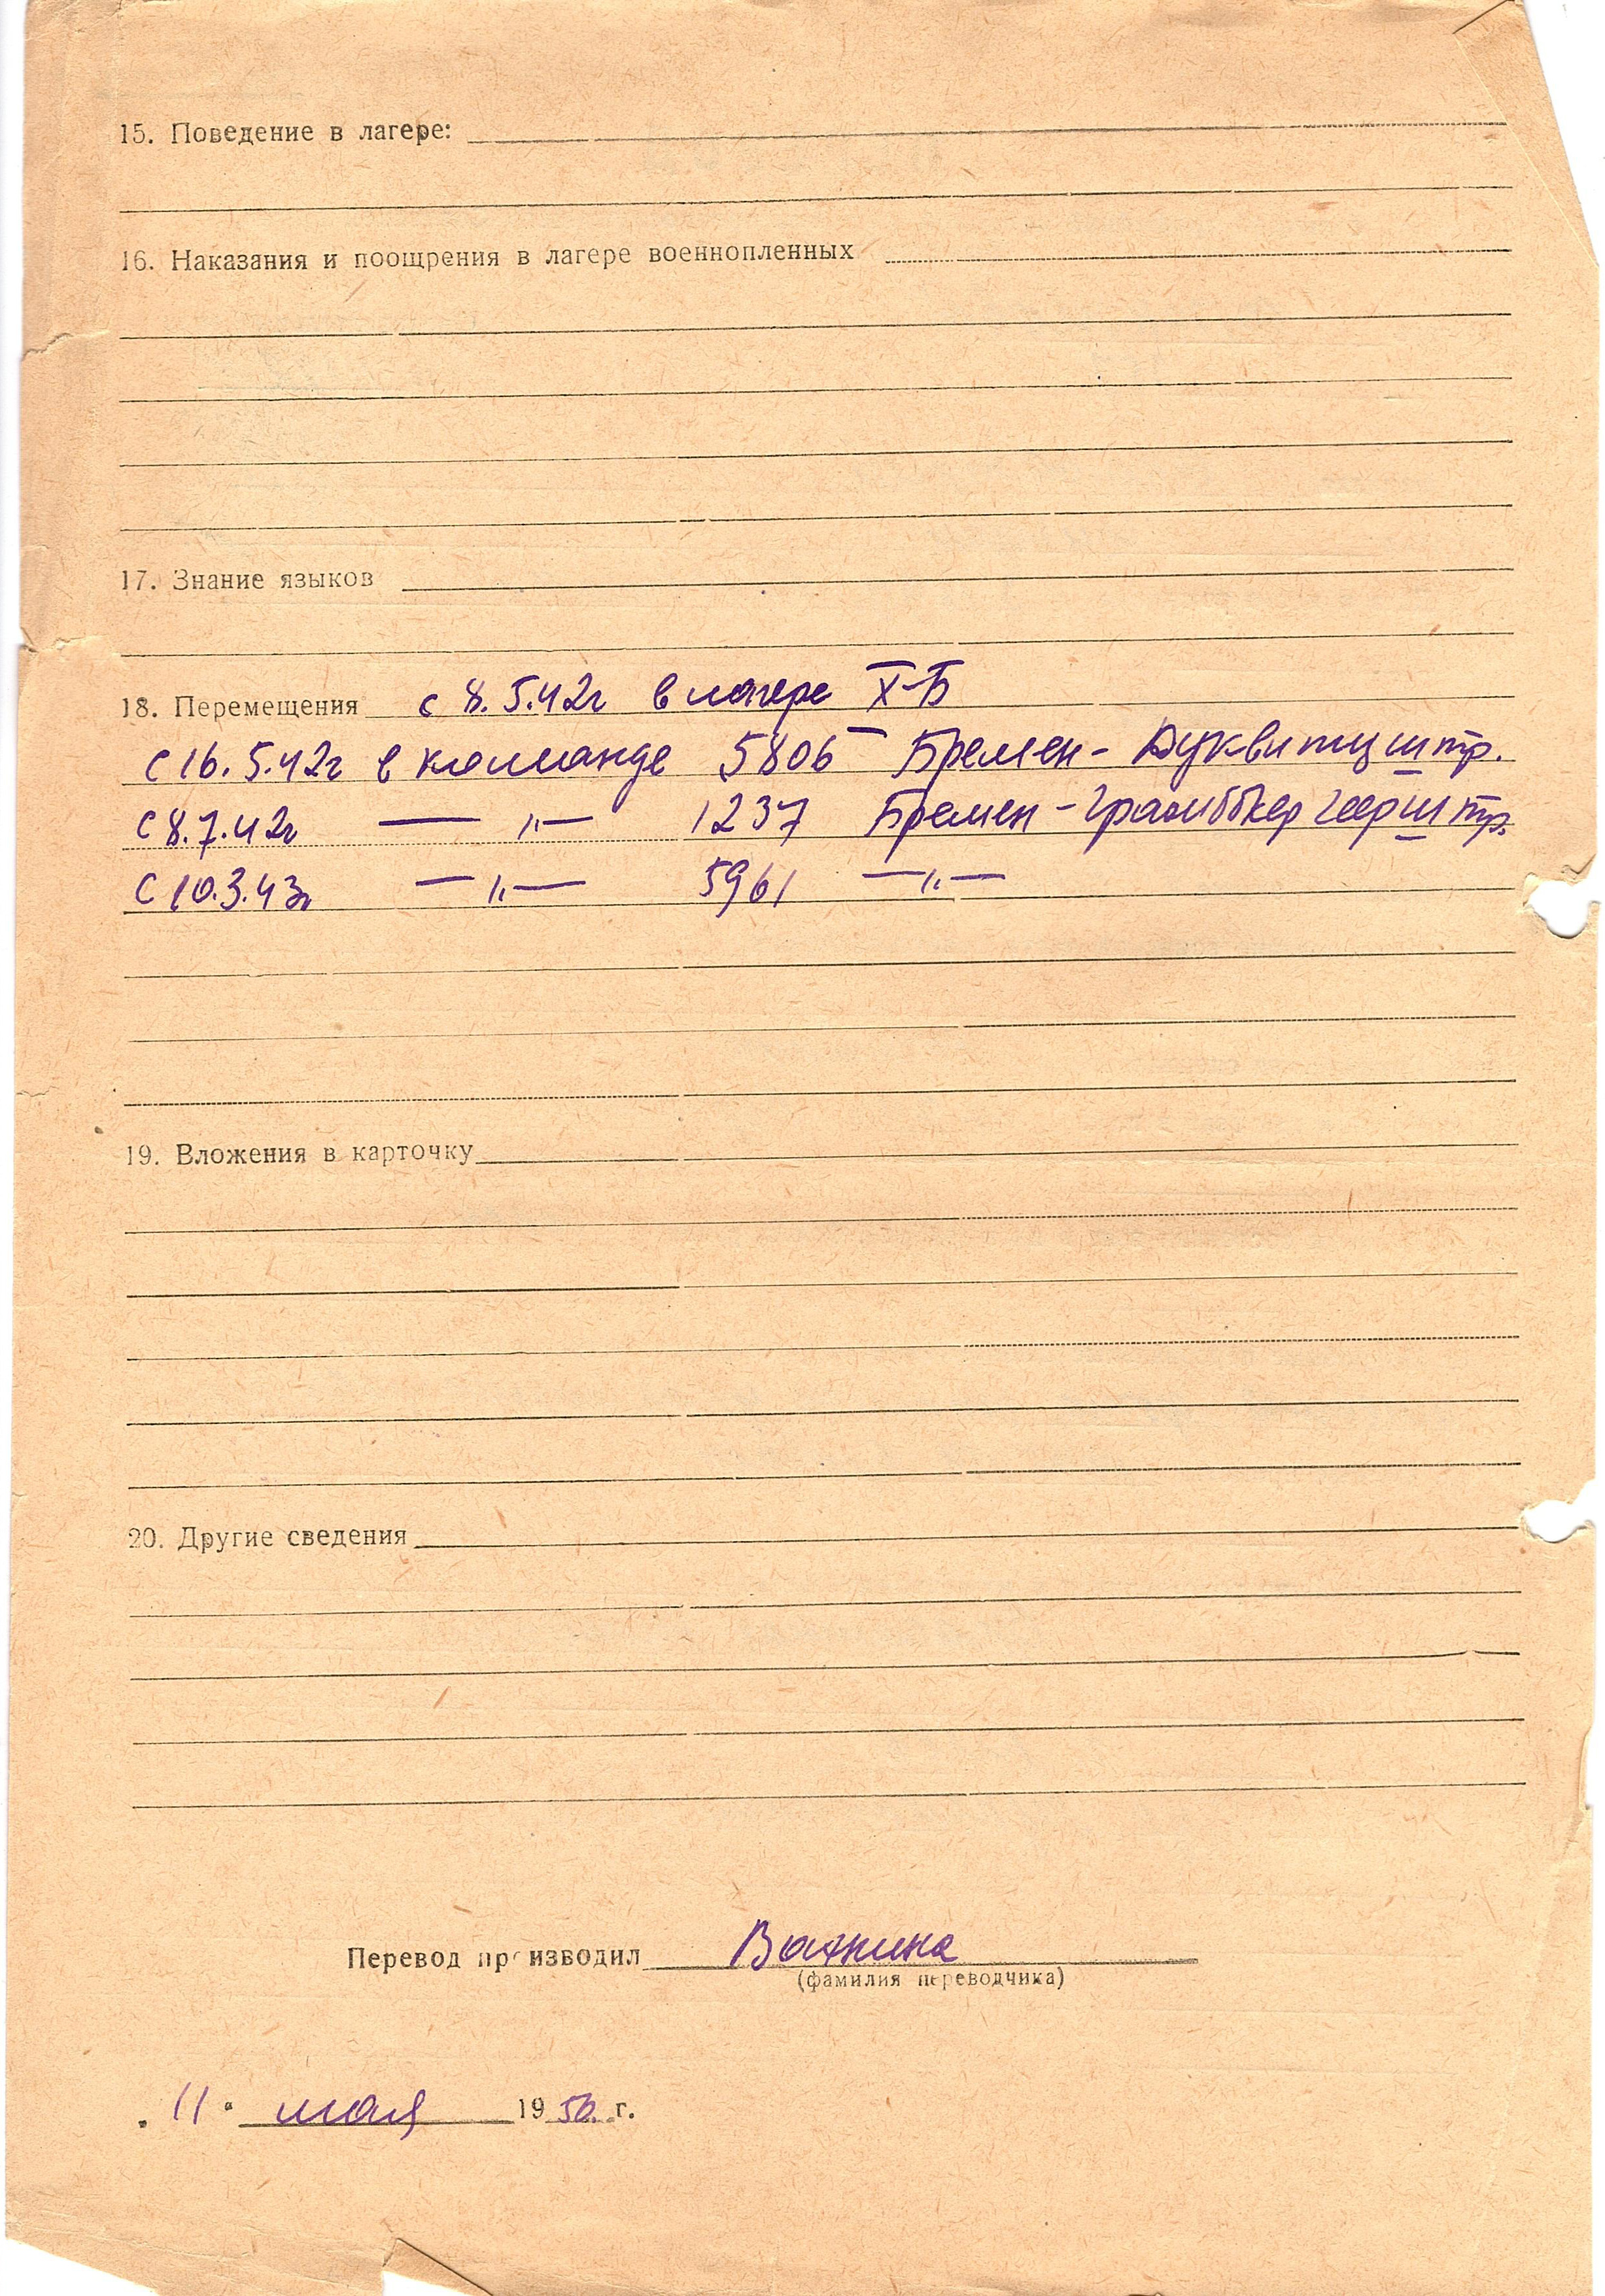 15. Поведение в лагере:
16. Наказания и поощрения в лагере военнопленных
17. Знание языков
18. Перемещения с 8.5.42г в лагере X-Б
с 16.5.42г в команде 5806 Бремен- Дуквитцштр.
с 8.7.42г — „ — 1237 Бремен - Грамбкер Геерштр.
с 10.3.43г — „ — 5961 — „ —
19. Вложения в карточку
20. Другие сведения
Перевод производил
(фамилия переводчика)
„ 11 " мая 1950 г.